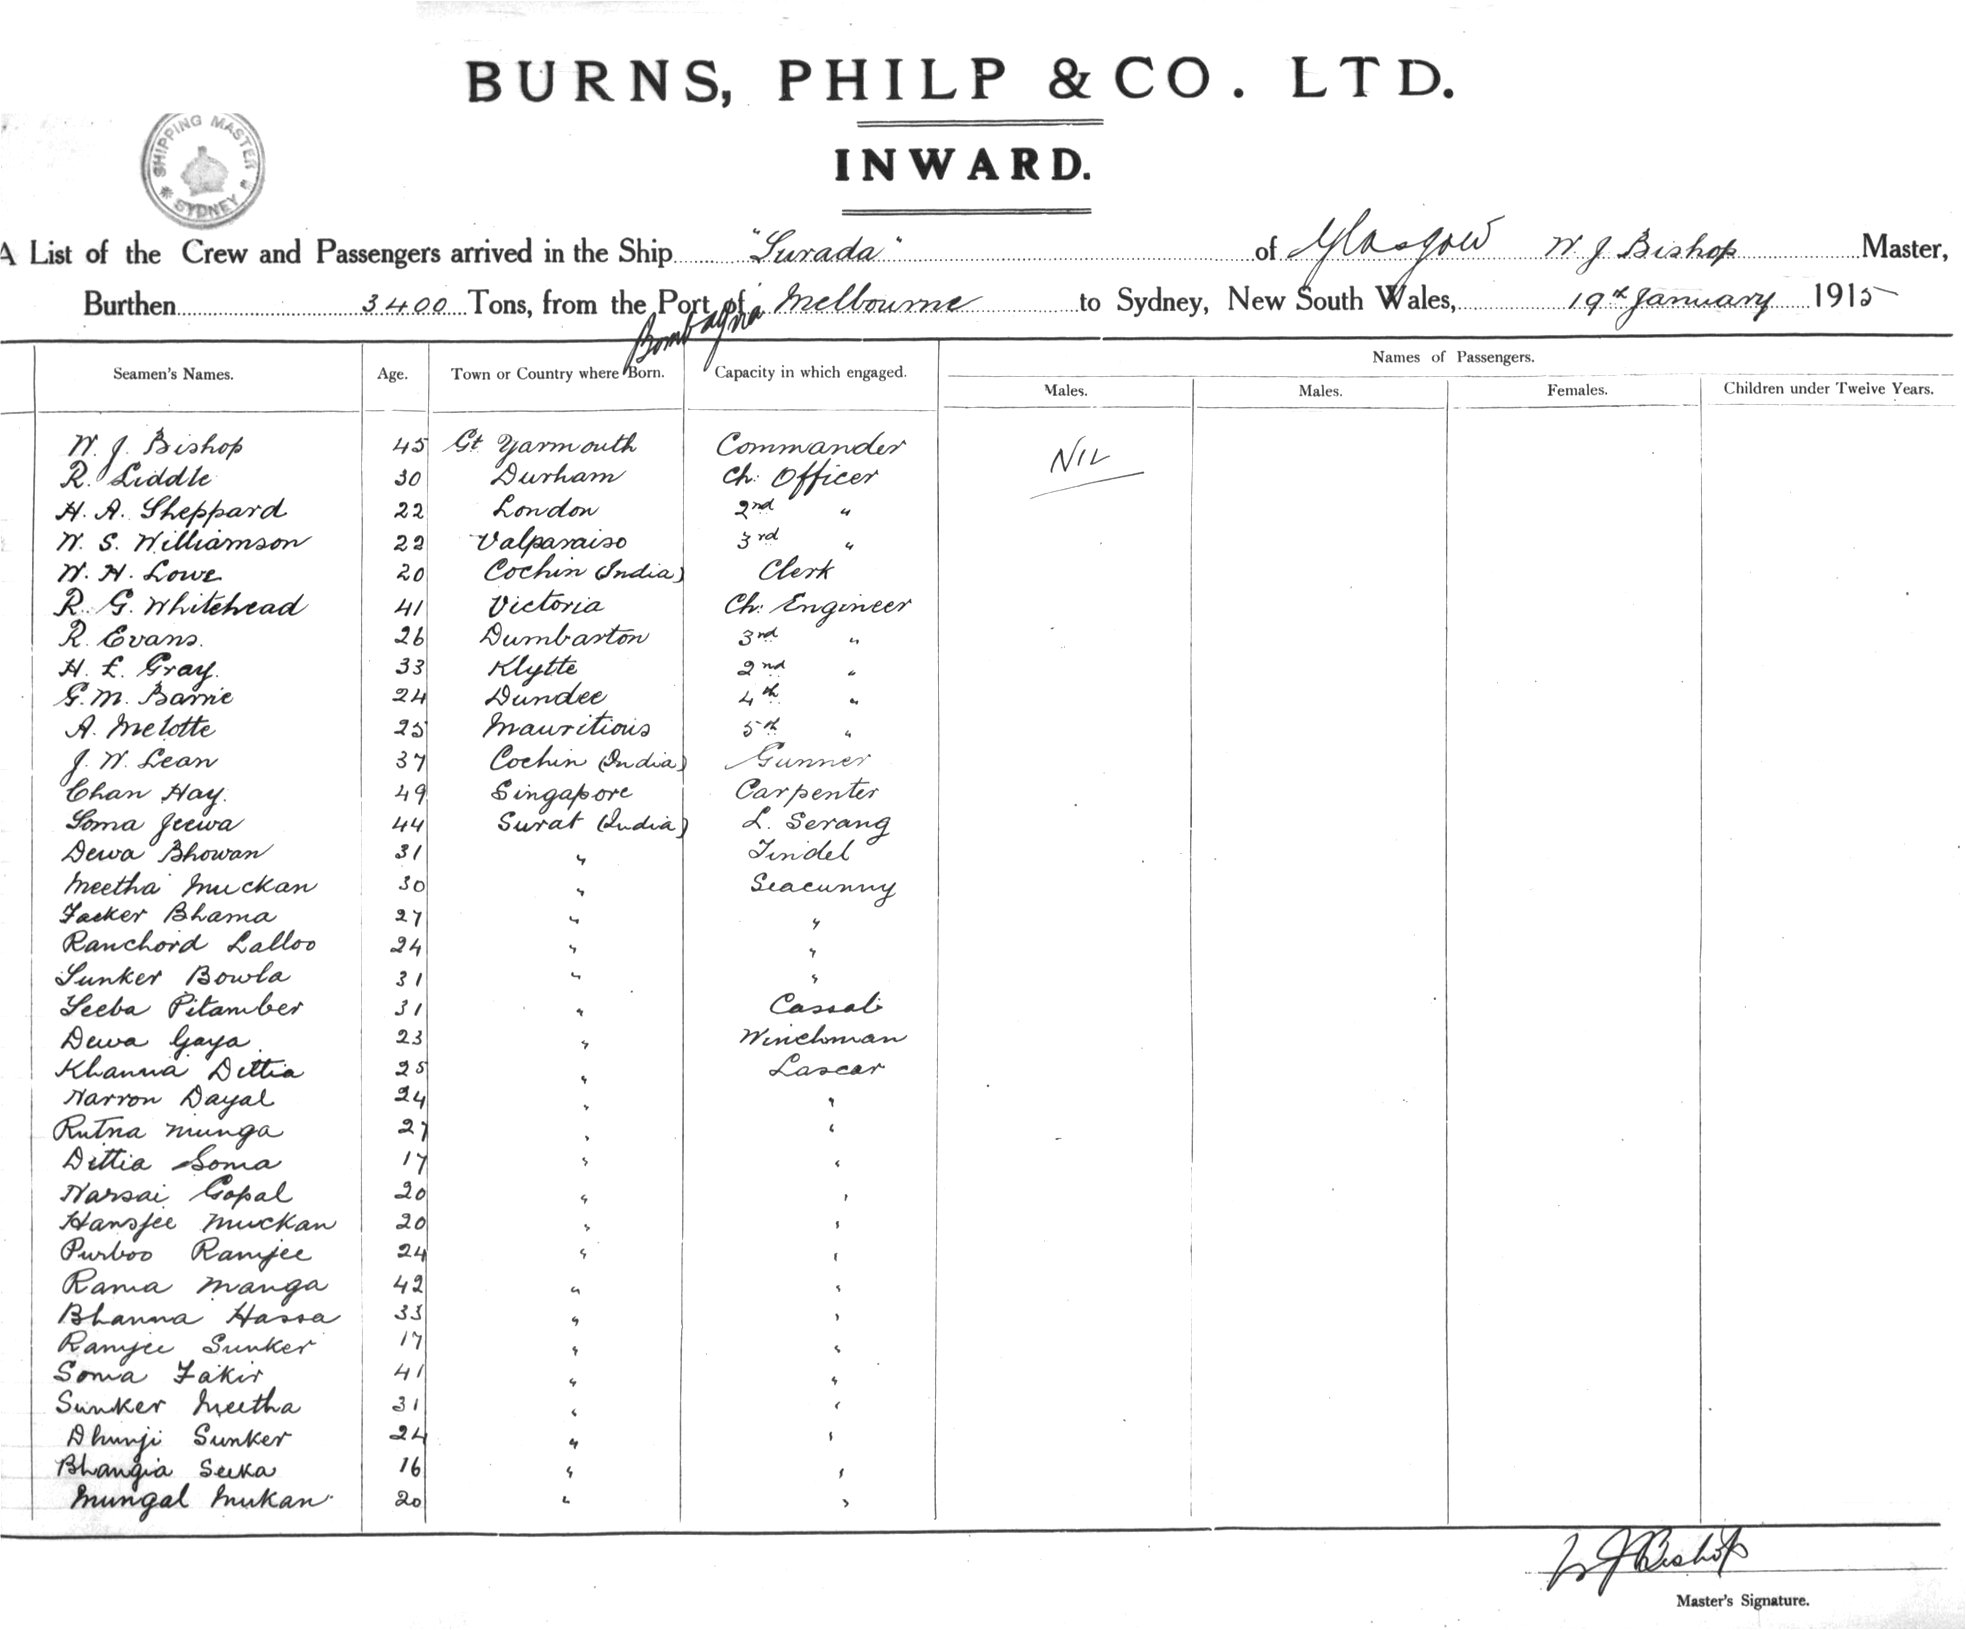 BURNS, PHILP & CO. LTD.
INWARD.
SHIPPING MASTER SYDNEY
A List of the Crew and Passengers arrived in the Ship "Surada" of Glasgow W. J. Bishop Master,
Burthen 3400 Tons, from the Port of Melbourne to Sydney, New South Wales, 19th January 1915
Seamen's Names. Age. Town or Country where Born. Capacity in which engaged. Names of Passengers.
Males. Males. Females. Children under Twelve Years.
W. J. Bishop 45 Gt Yarmouth Commander NIL
R. Liddle 30 Durham Ch: Officer
H. A. Sheppard 22 London 2nd "
W. S. Williamson 22 Valparaiso 3rd "
W. H. Lowe 20 Cochin (India) Clerk
R. G. Whitehead 41 Victoria Ch: Engineer
R. Evans. 26 Dumbarton 3rd "
H. L. Gray. 33 Klytte 2nd "
G. M. Barrie 24 Dundee 4th "
A. Melotte 25 Mauritious 5th "
J. W. Lean 37 Cochin (India) Gunner
Chan Hay. 49 Singapore Carpenter
Soma Jeewa 44 Surat (India) L. Serang
Dewa Bhowan 31 " Tindel
Meetha Muckan 30 " Seacunny
Facker Bhama 27 " "
Ranchord Lalloo 24 " "
Sunker Bowla 31 " "
Seeba Pitamber 31 " Cassab
Dewa Gaya 23 " Winchman
Khanna Dittia 25 " Lascar
Narron Dayal 24 " "
Rutna Munga 27 " "
Dittia Soma 17 " "
Narsai Gopal 20 " "
Hansjee Muckan 20 " "
Purboo Ramjee 24 " "
Rama Manga 42 " "
Bhanna Hassa 33 " "
Ramjee Sunker 17 " "
Soma Fakir 41 " "
Sunker Meetha 31 " "
Dhunji Sunker 24 " "
Bhangia Seeka 16 " "
Mungal Mukan 20 " "
W J Bishop
Master's Signature.